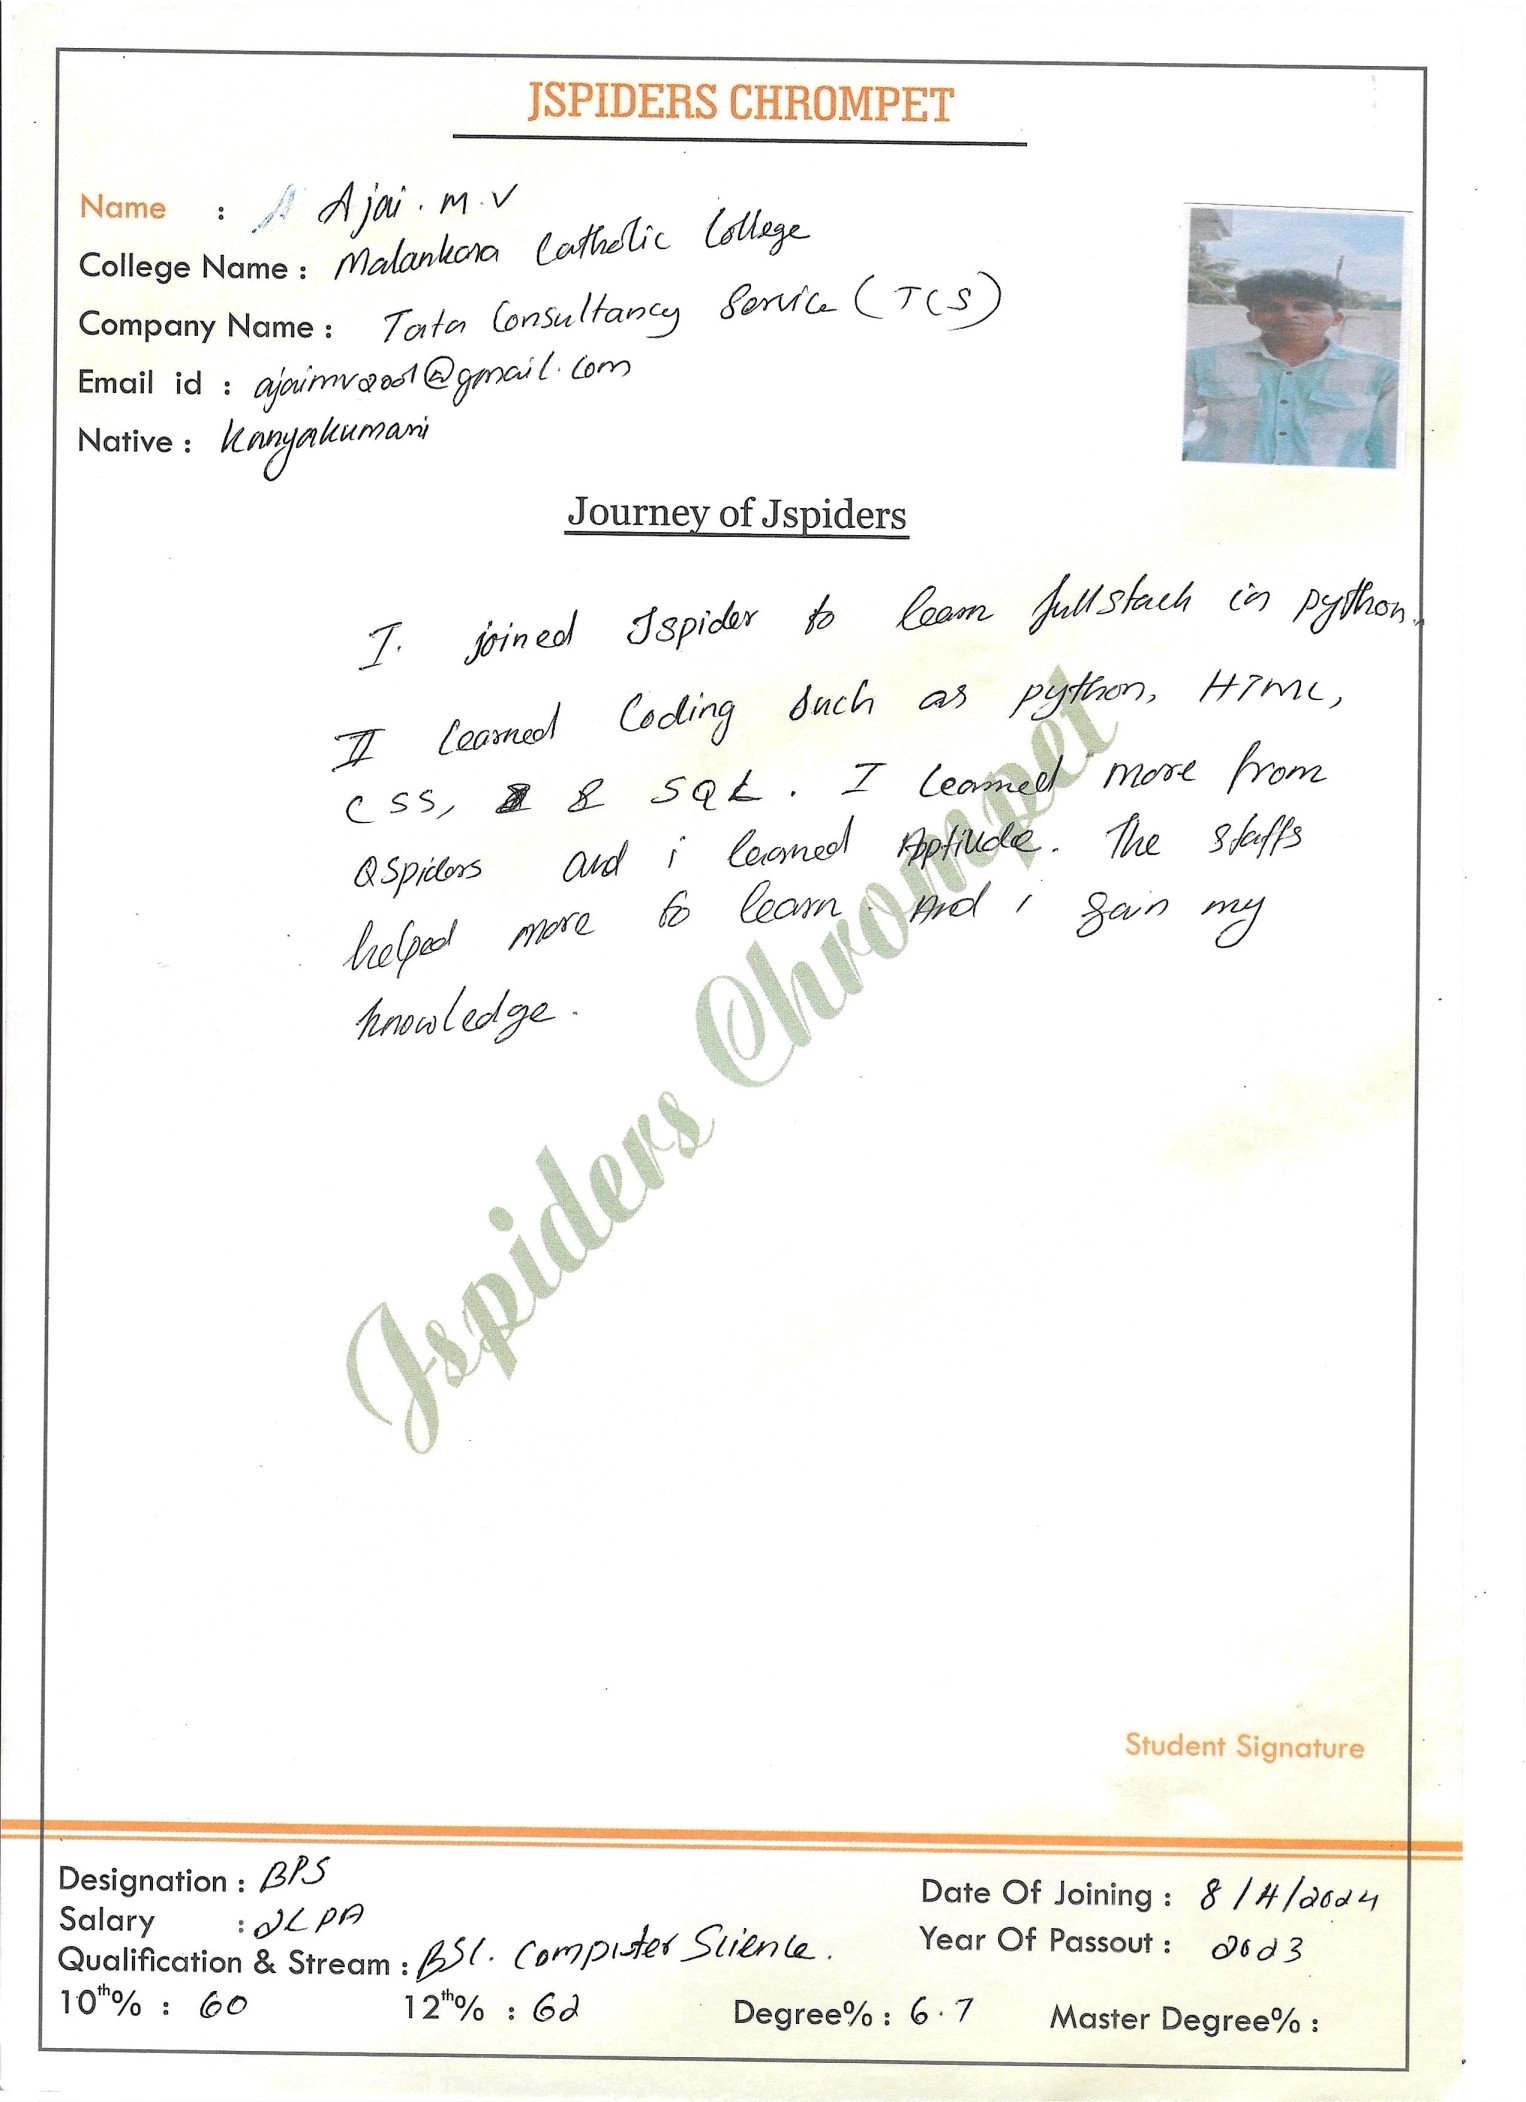 JSPIDERS CHROMPET
Name : Ajai . M . V
College Name : Malankara Catholic College
Company Name : Tata Consultancy Service (TCS)
Email id : ajaimv2001@gmail.com
Native : Kanyakumari
Journey of Jspiders
I. joined Jspider to learn fullstack in python.
II learned Coding such as python, HTML,
CSS, & SQL. I learned more from
QSpiders and i learned Aptitude. The staffs
helped more to learn. And i gain my
knowledge.
Jspiders Chrompet
Student Signature
Designation : BPS
Date Of Joining : 8/4/2024
Salary : 2LPA
Year Of Passout : 2023
Qualification & Stream : BSC. Computer Science.
10th% : 60 12th% : 62 Degree% : 6.7 Master Degree% :